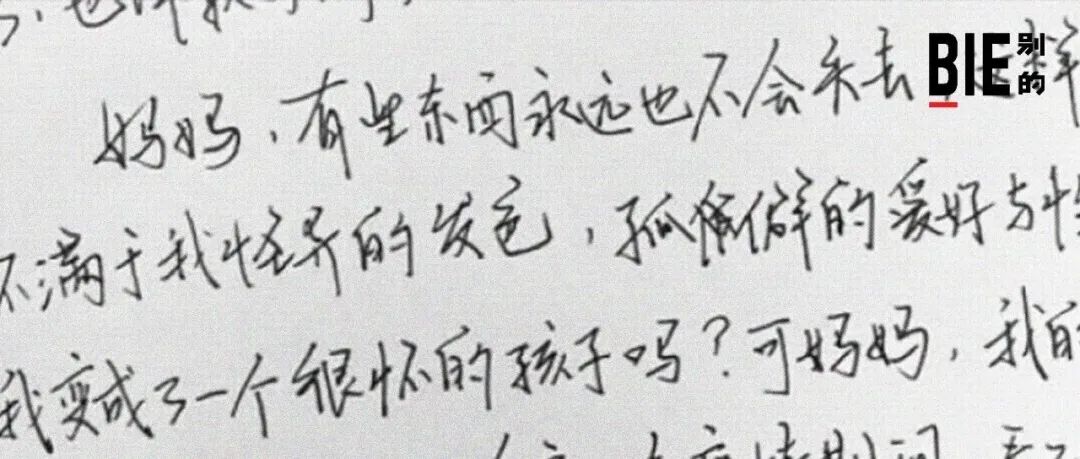 妈妈，有些东西永远也不会失去
BIE别的
不满于我怪异的发色，孤僻的爱好与性
我变成了一个很坏的孩子吗？可妈妈，我的